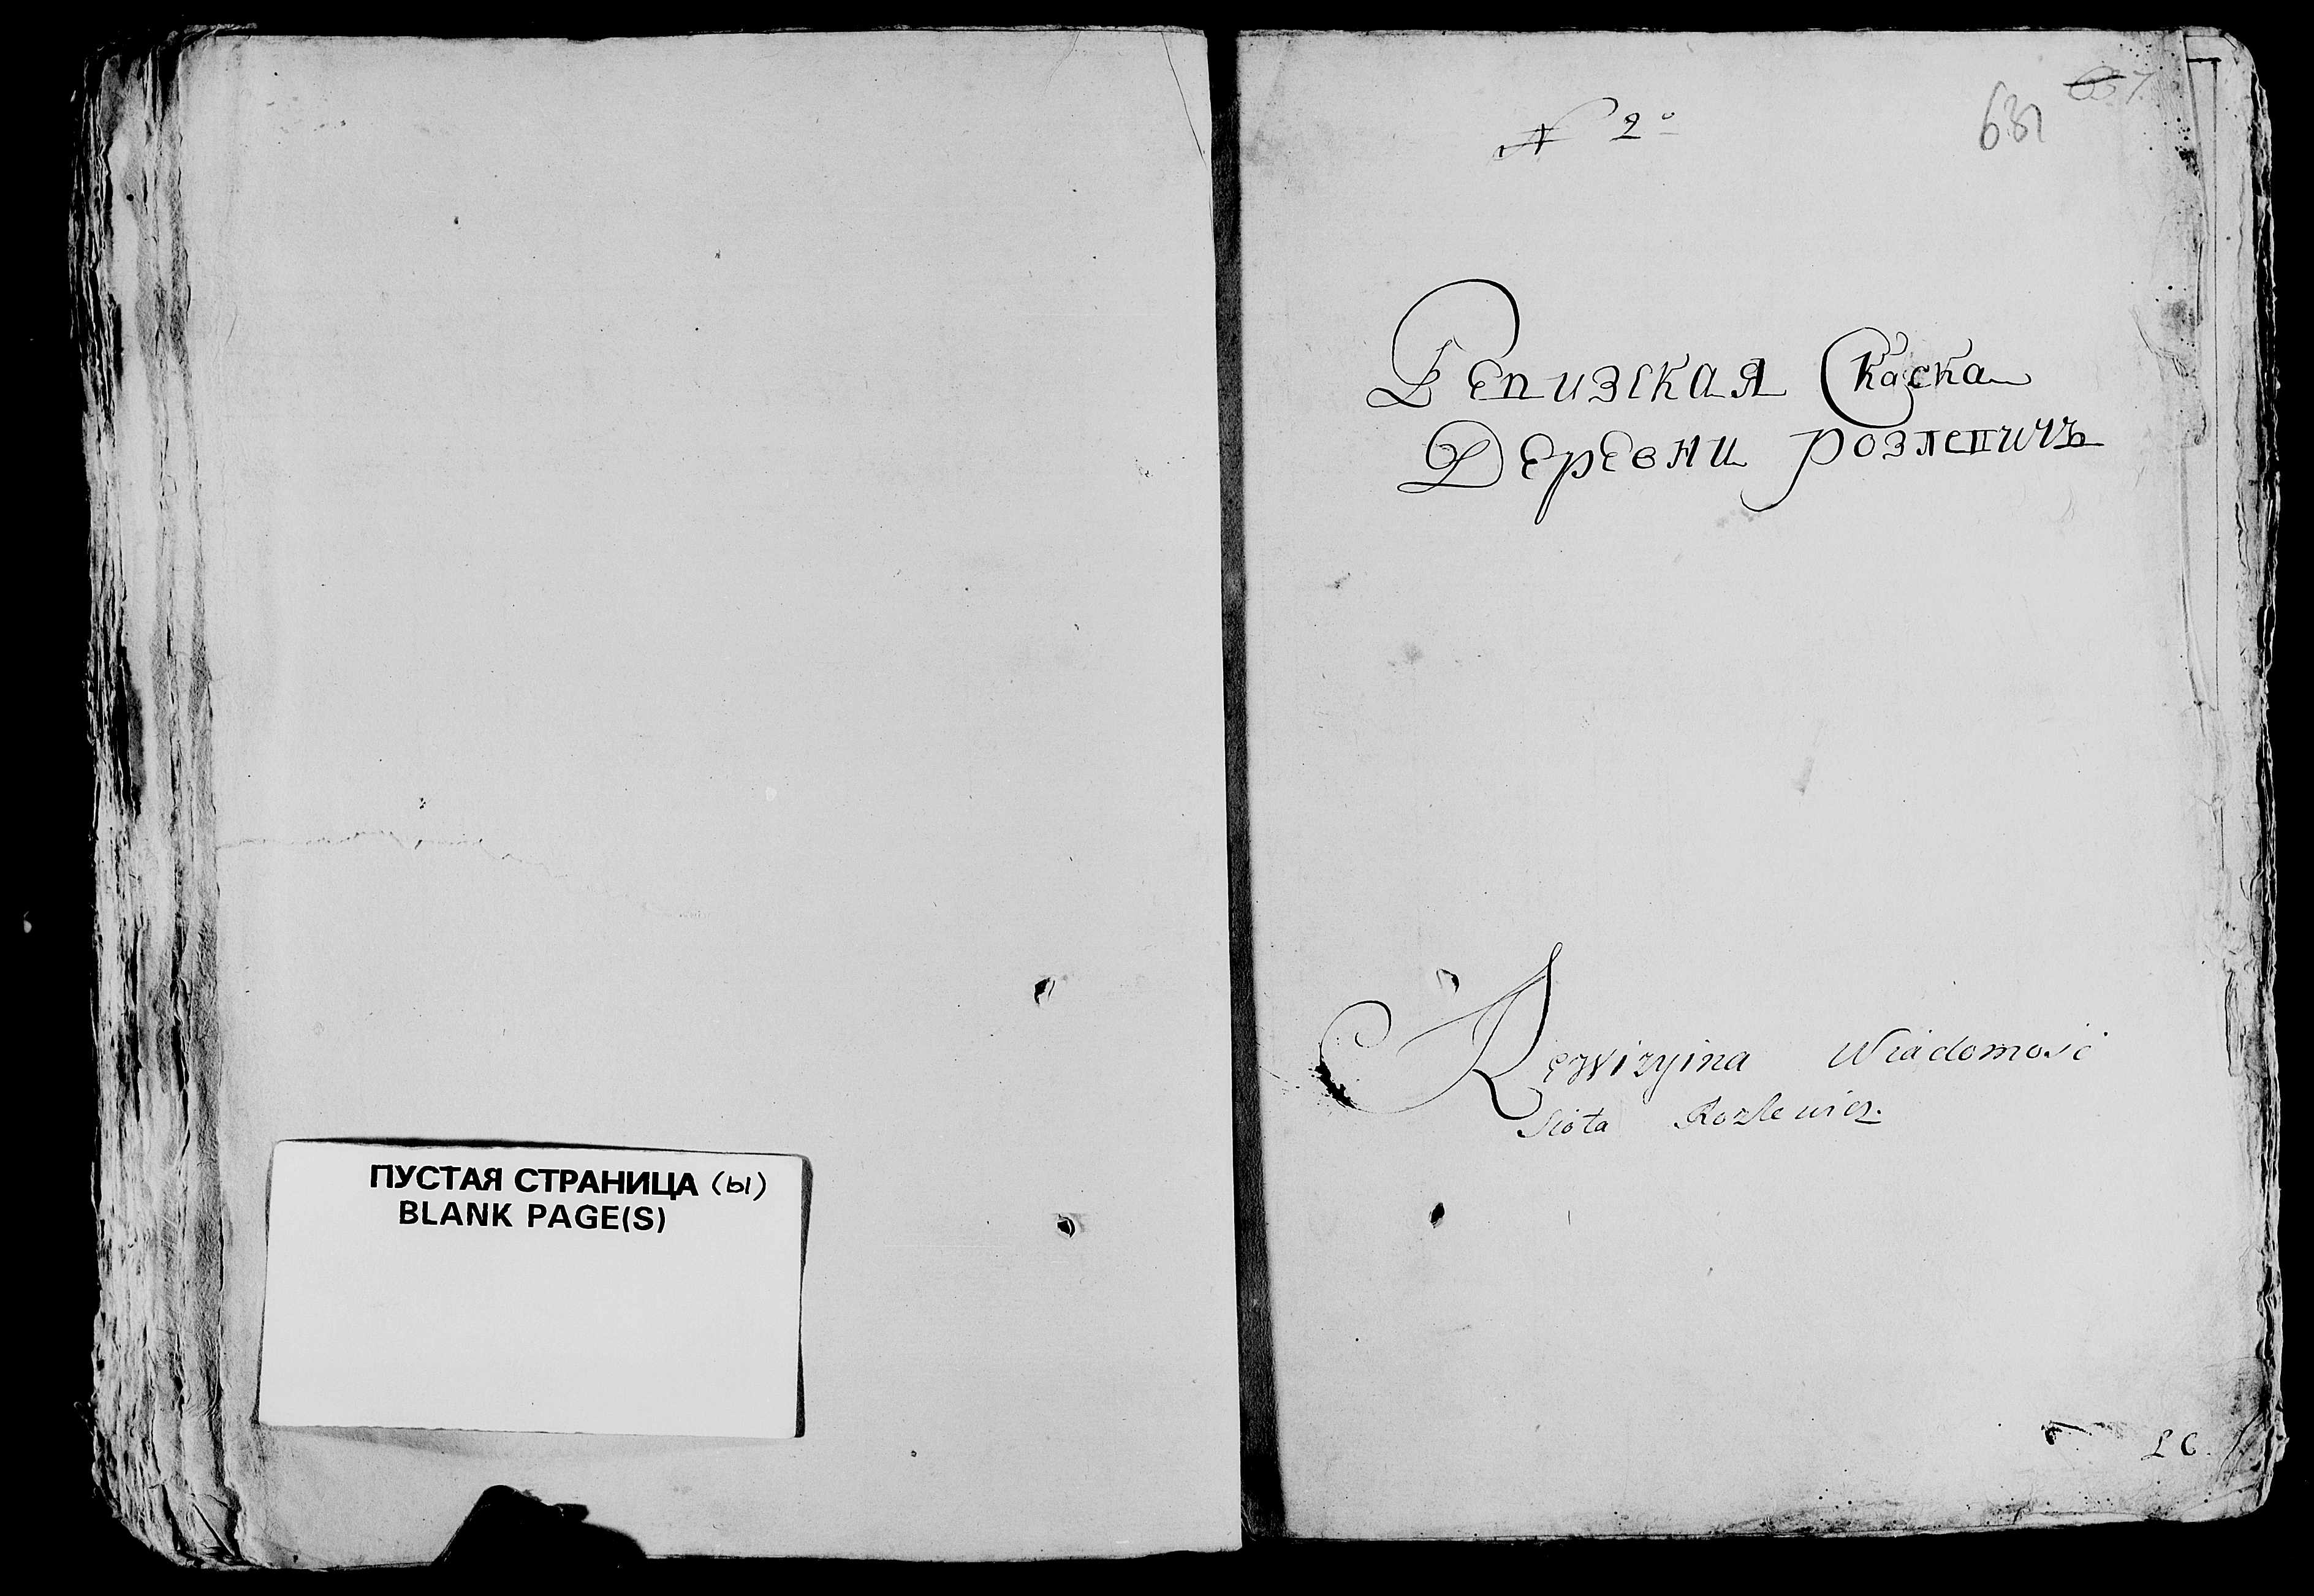 ПУСТАЯ СТРАНИЦА (ы)
BLANK PAGE(S)
N 2º
631
Репизская Скаска
Деревни Розлепичъ
Rewizyina Wiadomosć
Sioła Rozlewicz.